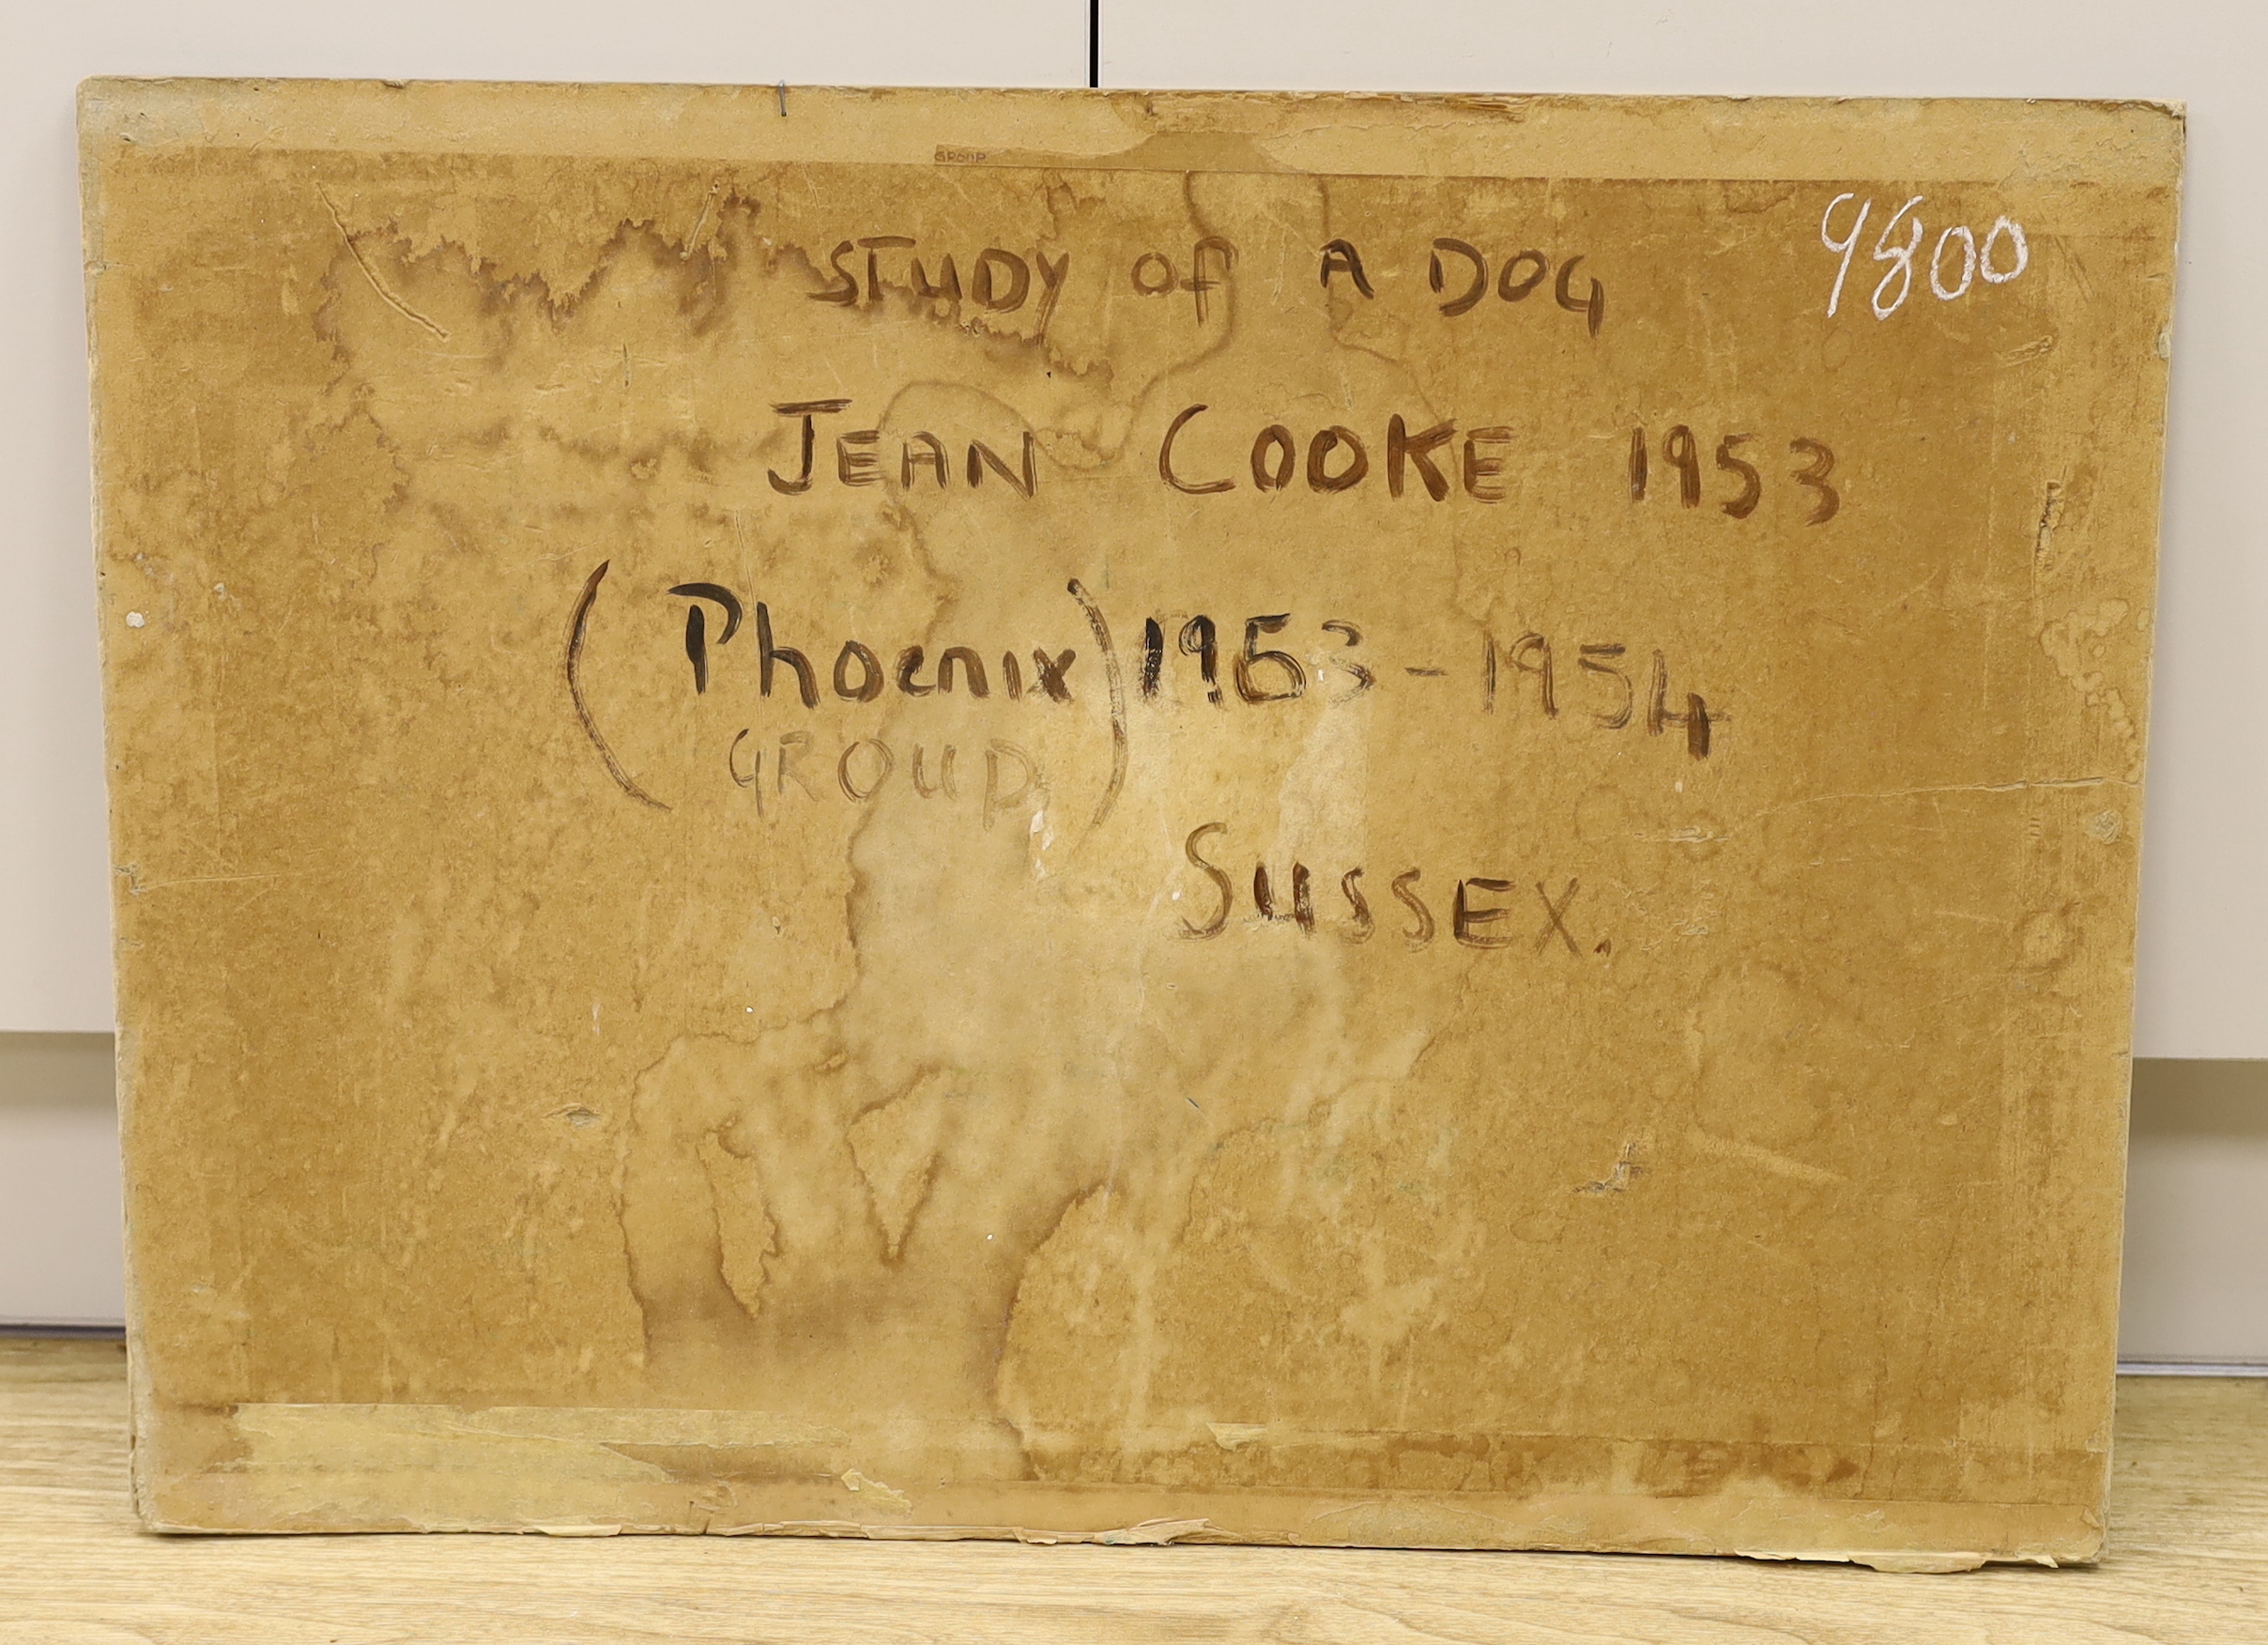 GROUP
STUDY OF A DOG
9800
JEAN COOKE 1953
(Phoenix) 1953-1954
GROUP
SUSSEX.